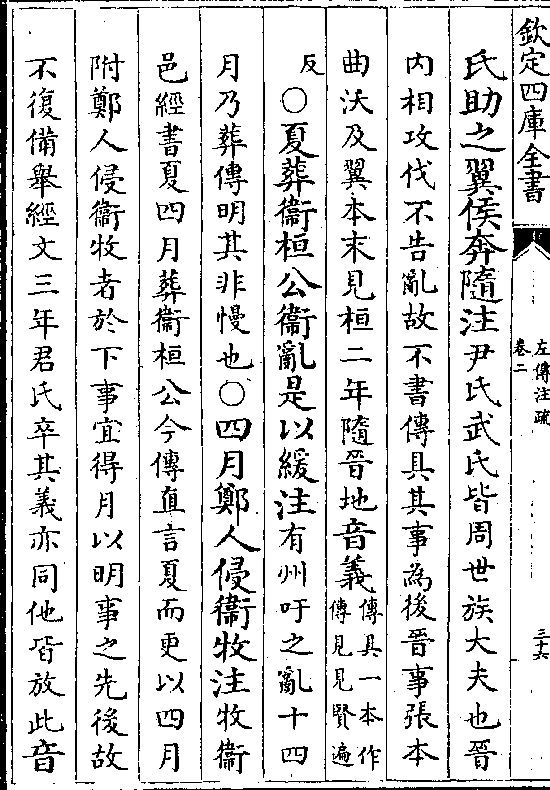 欽定四庫全書
左傳注疏
卷二
三十六
氏助之翼侯奔隨注尹氏武氏皆周世族大夫也晉
内相攻伐不告亂故不書傳具其事為後晉事張本
曲沃及翼本末見桓二年隨晉地音義傳具一本作
傳見見賢遍
反○夏葬衞桓公衞亂是以緩注有州吁之亂十四
月乃葬傳明其非慢也○四月鄭人侵衞牧注牧衞
邑經書夏四月葬衞桓公今傳直言夏而更以四月
附鄭人侵衞牧者於下事宜得月以明事之先後故
不復備舉經文三年君氏卒其義亦同他皆放此音